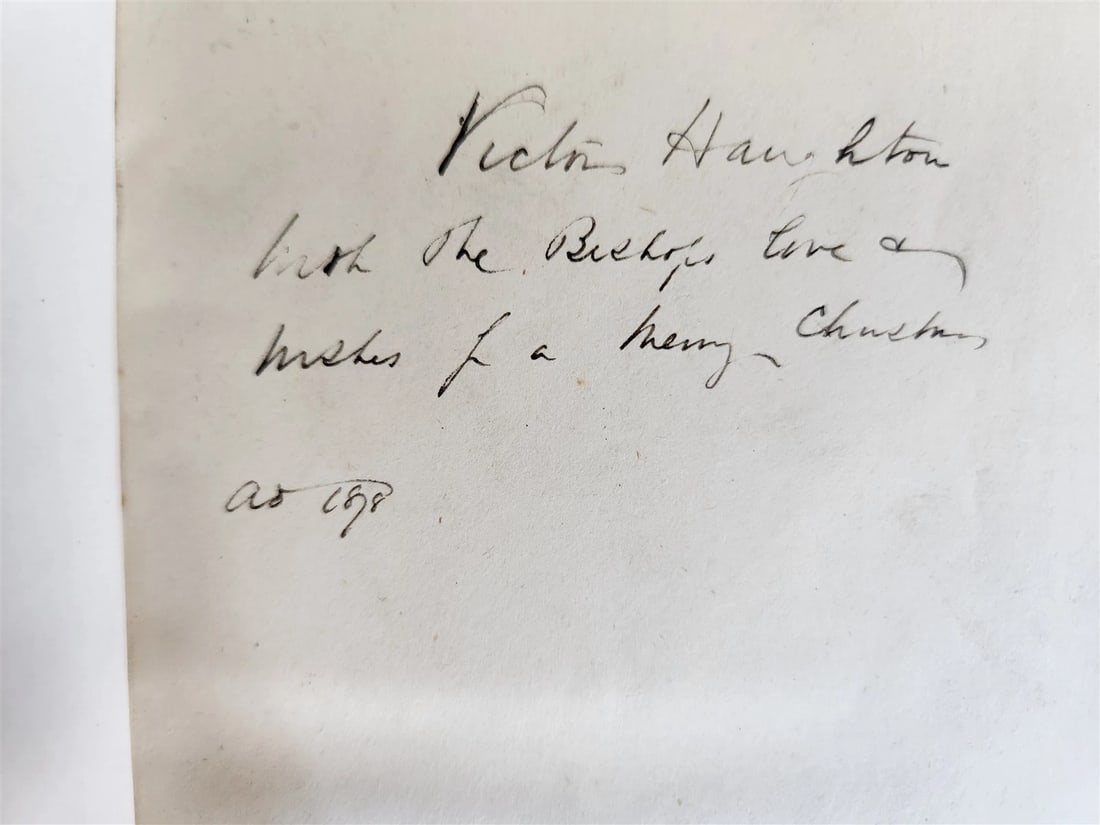 Victor Haughton
With the Bishops love &
wishes for a Merry Christmas
AD 1898